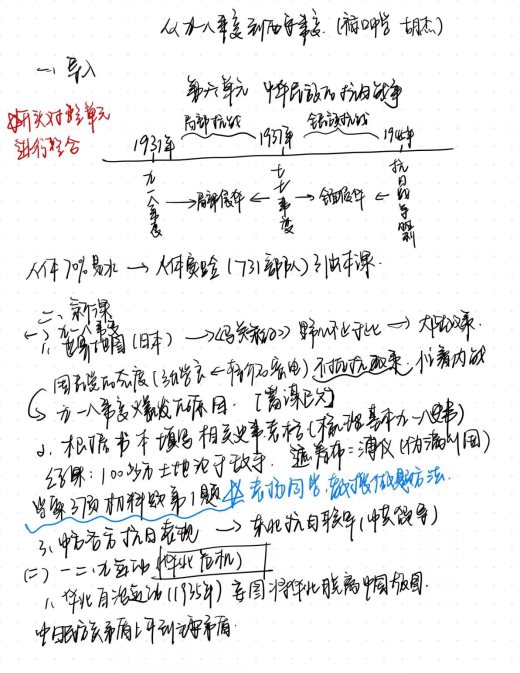 从九一八事变到西安事变.(胡杰)
一、导入
第六单元 中华民族的抗日战争
开头对整单元
进行整合
局部抗战 全面抗战
1931年 1937年 1945年
九一八事变 → 局部侵华 ← 七七事变 → 全面侵华 ← 抗日战争胜利
人体70%是水 → 人体实验(731部队)引出本课.
二、新课
(一) 九一八事变
1、世界地图(日本) → 《马关条约》 野心不止于此 → 大陆政策.
国民党的态度(张学良 ← 蒋介石密电) 不抵抗政策. 忙着内战
九一八事变爆发的原因. [蒋泽民]
2、根据书本填写相关史事表格(梳理基本九一八史事)
结果:100多万土地沦于敌手. 遮羞布:溥仪(伪满州国)
学案3页材料题第1题 表扬同学,教授做题方法.
3、中方各方抗日表现 → 东北抗日联军(中共领导)
(二) 一二·九运动 (华北危机)
1、华北自治运动(1935年) 妄图将华北脱离中国版图.
中日民族矛盾上升到主要矛盾.